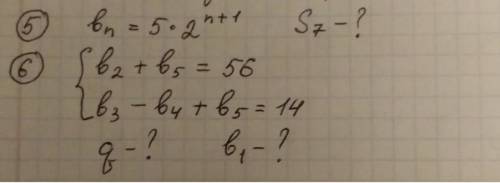 ⑤ bₙ = 5 · 2ⁿ⁺¹ S₇ - ?
⑥ { b₂ + b₅ = 56
b₃ - b₄ + b₅ = 14
q - ? b₁ - ?